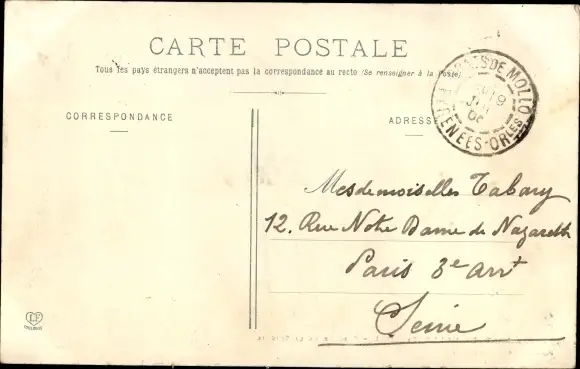 CARTE POSTALE
Tous les pays étrangers n'acceptent pas la correspondance au recto (Se renseigner à la Poste)
CORRESPONDANCE
ADRESSE
DE MOLLO
PYRENEES-ORLES
Mesdemoiselles Tabary
12. Rue Notre Dame de Nazareth
Paris 3e arrt
Seine